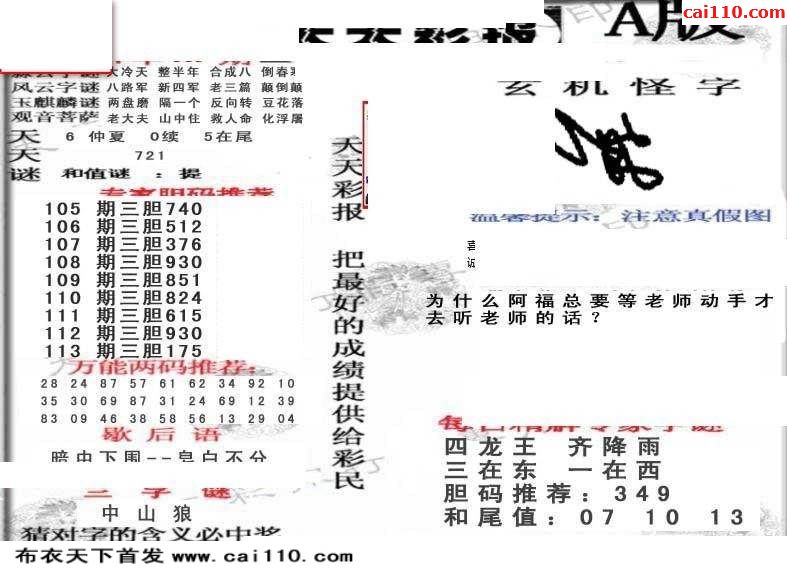 cai110.com
天天彩报
A版
大冷天 整半年 合成八 倒春寒
风云字谜 八路军 新四军 老三篇 颠倒颠
玉麒麟谜 两盘磨 隔一个 反向转 豆花落
观音菩萨 老大夫 山中住 救人命 化浮屠
天 6 仲夏 0续 5在尾
天 721
谜 和值谜 : 提
专家胆码推荐
105 期三胆740
106 期三胆512
107 期三胆376
108 期三胆930
109 期三胆851
110 期三胆824
111 期三胆615
112 期三胆930
113 期三胆175
万能两码推荐:
28 24 87 57 61 62 34 92 10
35 30 69 87 31 24 69 12 39
83 09 46 38 58 56 13 29 04
歇后语
暗中下围--皂白不分
三字谜
中山狼
猜对字的含义必中奖
天天彩报 把最好的成绩提供给彩民
玄机怪字
温馨提示: 注意真假图
喜
诚
为什么阿福总要等老师动手才
去听老师的话?
每日精解专家字谜
四龙王 齐降雨
三在东 一在西
胆码推荐: 349
和尾值: 07 10 13
布衣天下首发 www.cai110.com